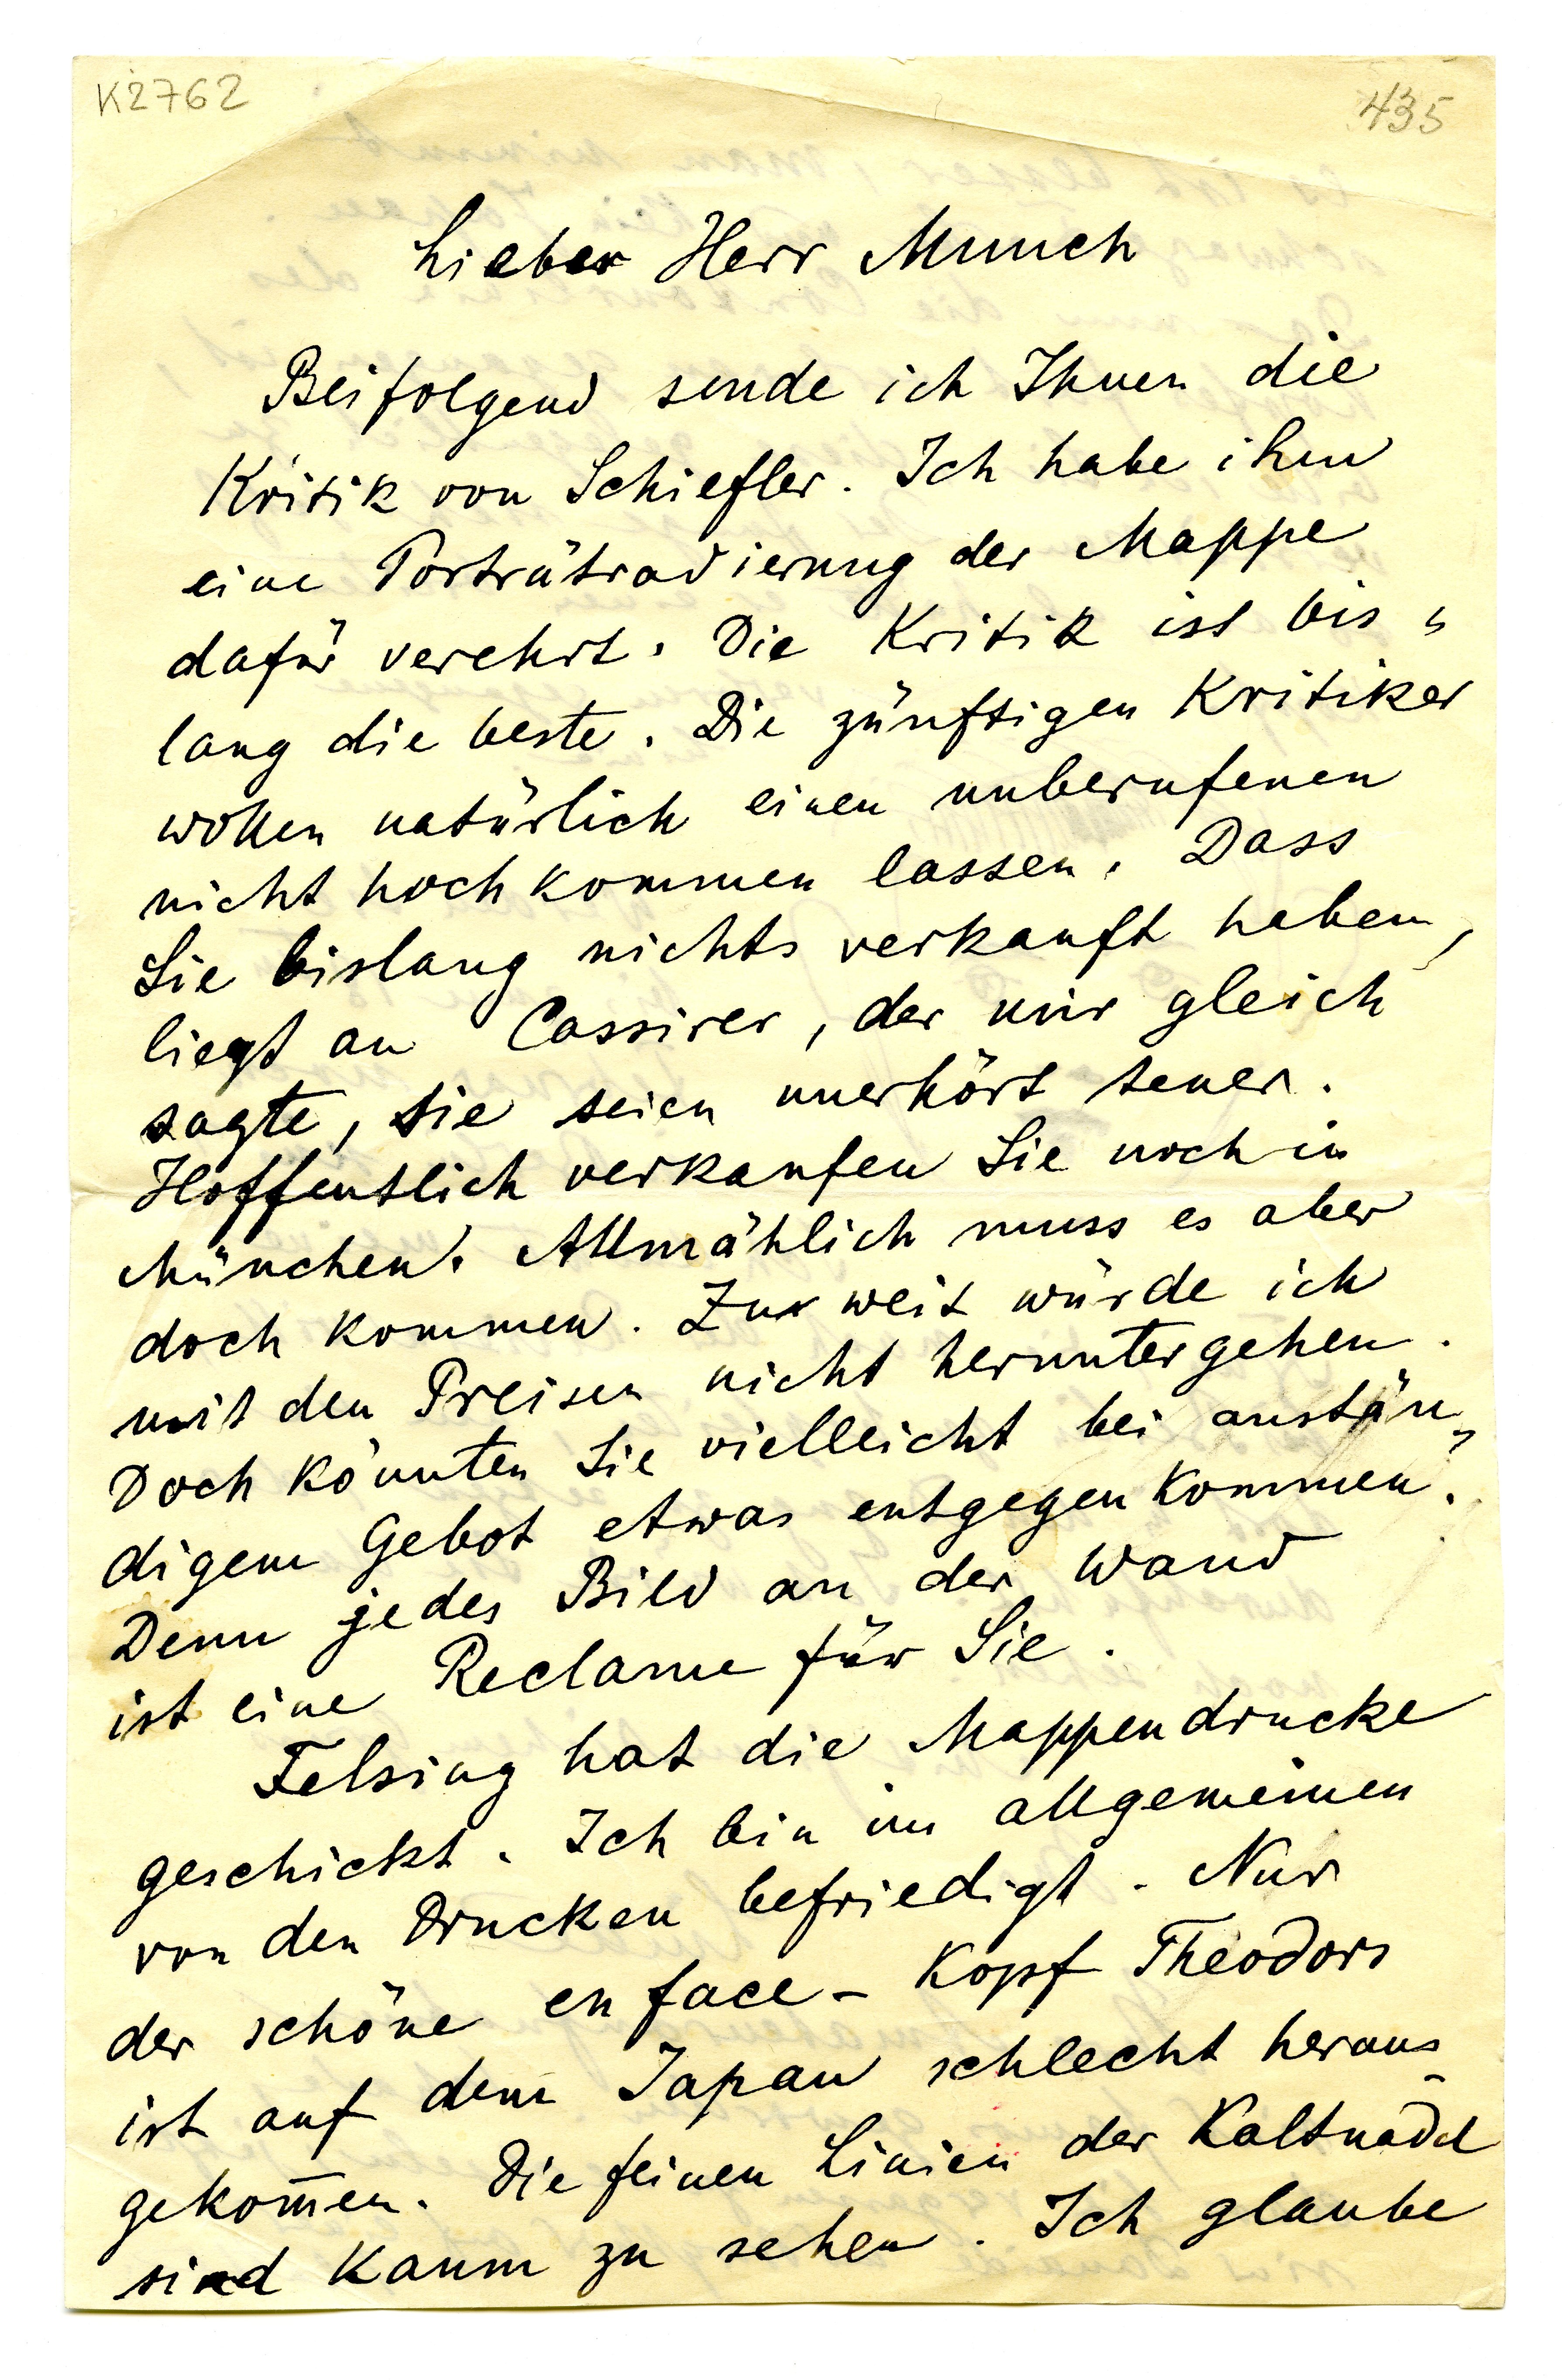 K2762
435
Lieber Herr Munch
Beifolgend sende ich Ihnen die
Kritik von Schiefler. Ich habe ihm
eine Porträtradierung der Mappe
dafür verehrt. Die Kritik ist bis„
lang die beste. Die zünftigen Kritiker
wollen natürlich einen unberufenen
nicht hochkommen lassen. Dass
Sie bislang nichts verkauft haben,
liegt an Cassirer, der mir gleich
sagte, Sie seien unerhört teuer.
Hoffentlich verkaufen Sie noch in
München. Allmählich muss es aber
doch kommen. Zu weit würde ich
mit den Preisen nicht heruntergehen.
Doch könnten Sie vielleicht bei anstän„
digem Gebot etwas entgegenkommen.
Denn jedes Bild an der Wand
ist eine Reclame für Sie.
Felsing hat die Mappendrucke
geschickt. Ich bin im allgemeinen
von den Drucken befriedigt. Nur
der schöne en face-Kopf Theodors
ist auf dem Japan schlecht heraus-
gekom̅en. Die feinen Linien der Kaltnadel
sind kaum zu sehen. Ich glaube